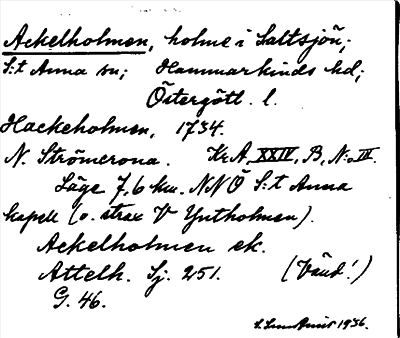 Ackelholmen, holme i Saltsjön;
S:t Anna sn; Hammarkinds hd;
Östergötl. l.
Hackeholmen, 1734.
N. Strömerona. Kr.A, XXIV, B, N:o III.
Läge 7,6 km. NNÖ S:t Anna
kapell (o. strax V Yxtholmen).
Ackelholmen ek.
Attelh. Sj. 251. (Vänd!)
G. 46.
1936.